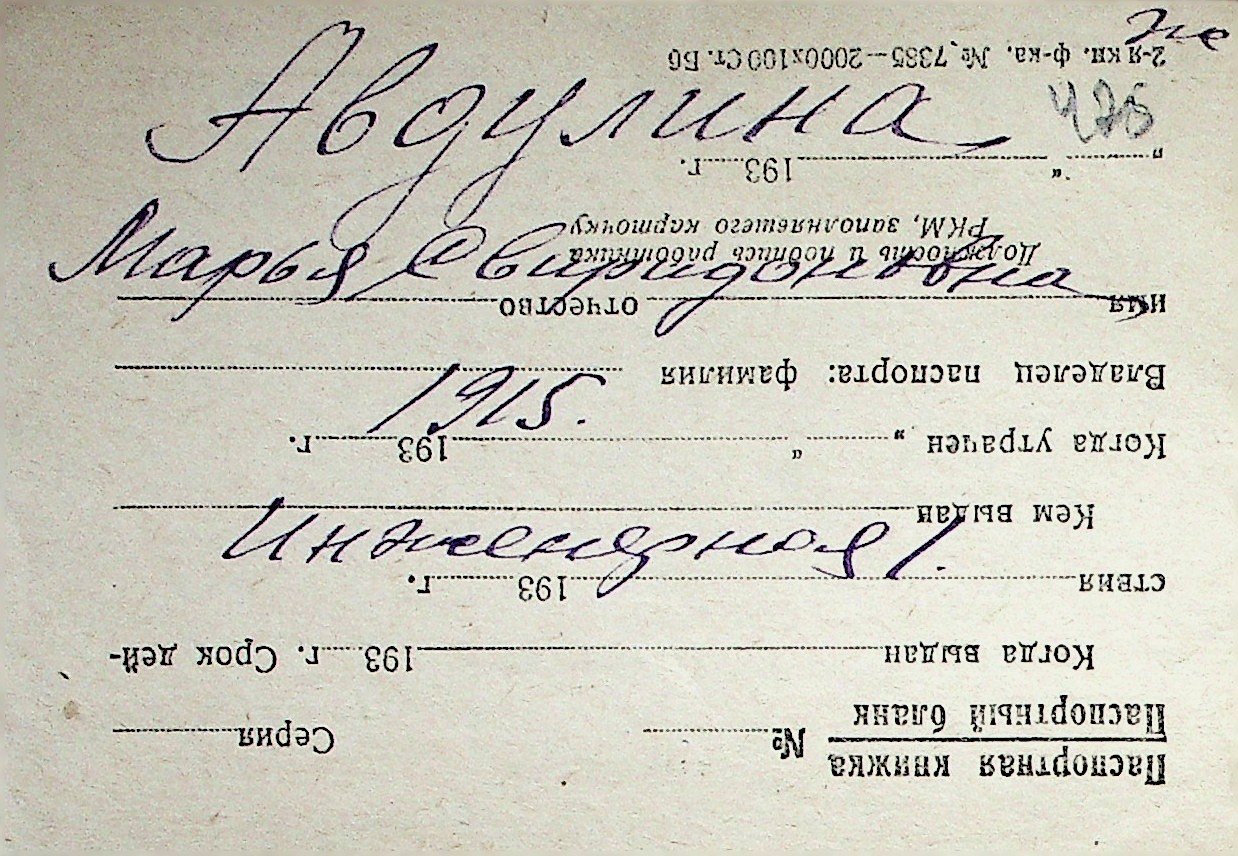 же
Авдулина
Марья Свиридоновна
1915.
Инженерная 1.
Паспортная книжка
Паспортный бланк № Серия
Когда выдан 193 г. Срок дей-
ствия 193 г.
Кем выдан
Когда утрачен „ “ 193 г.
Владелец паспорта: фамилия
имя отчество
Должность и подпись работника
РКМ, заполнявшего карточку
„ “ 193 г.
2-я кн. ф-ка. № 7385—2000х100 Ст. Бб